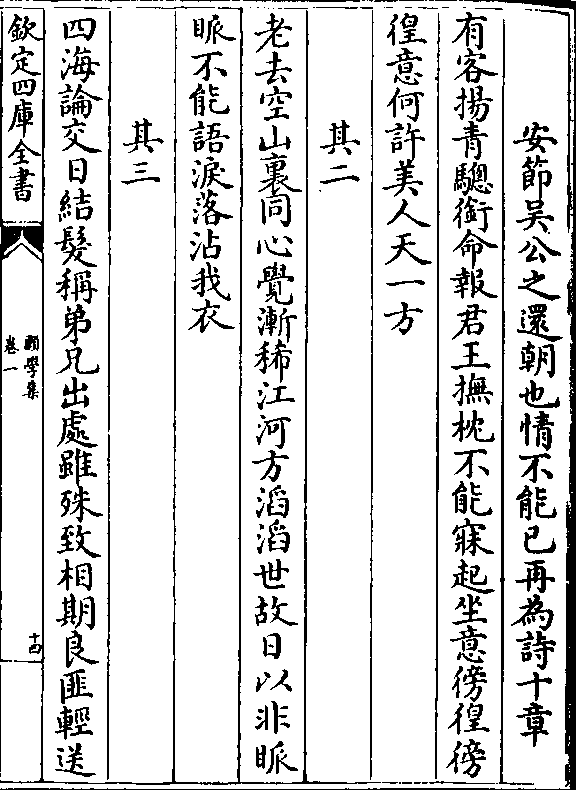 安節吴公之還朝也情不能已再為詩十章
有客揚青驄銜命報君王撫枕不能寐起坐意徬徨徬
徨意何許美人天一方
其二
老去空山裏同心覺漸稀江河方滔滔世故日以非眽
眽不能語淚落沾我衣
其三
四海論交日結髮稱弟兄出處雖殊致相期良匪輕送
欽定四庫全書
願學集
卷一
十四